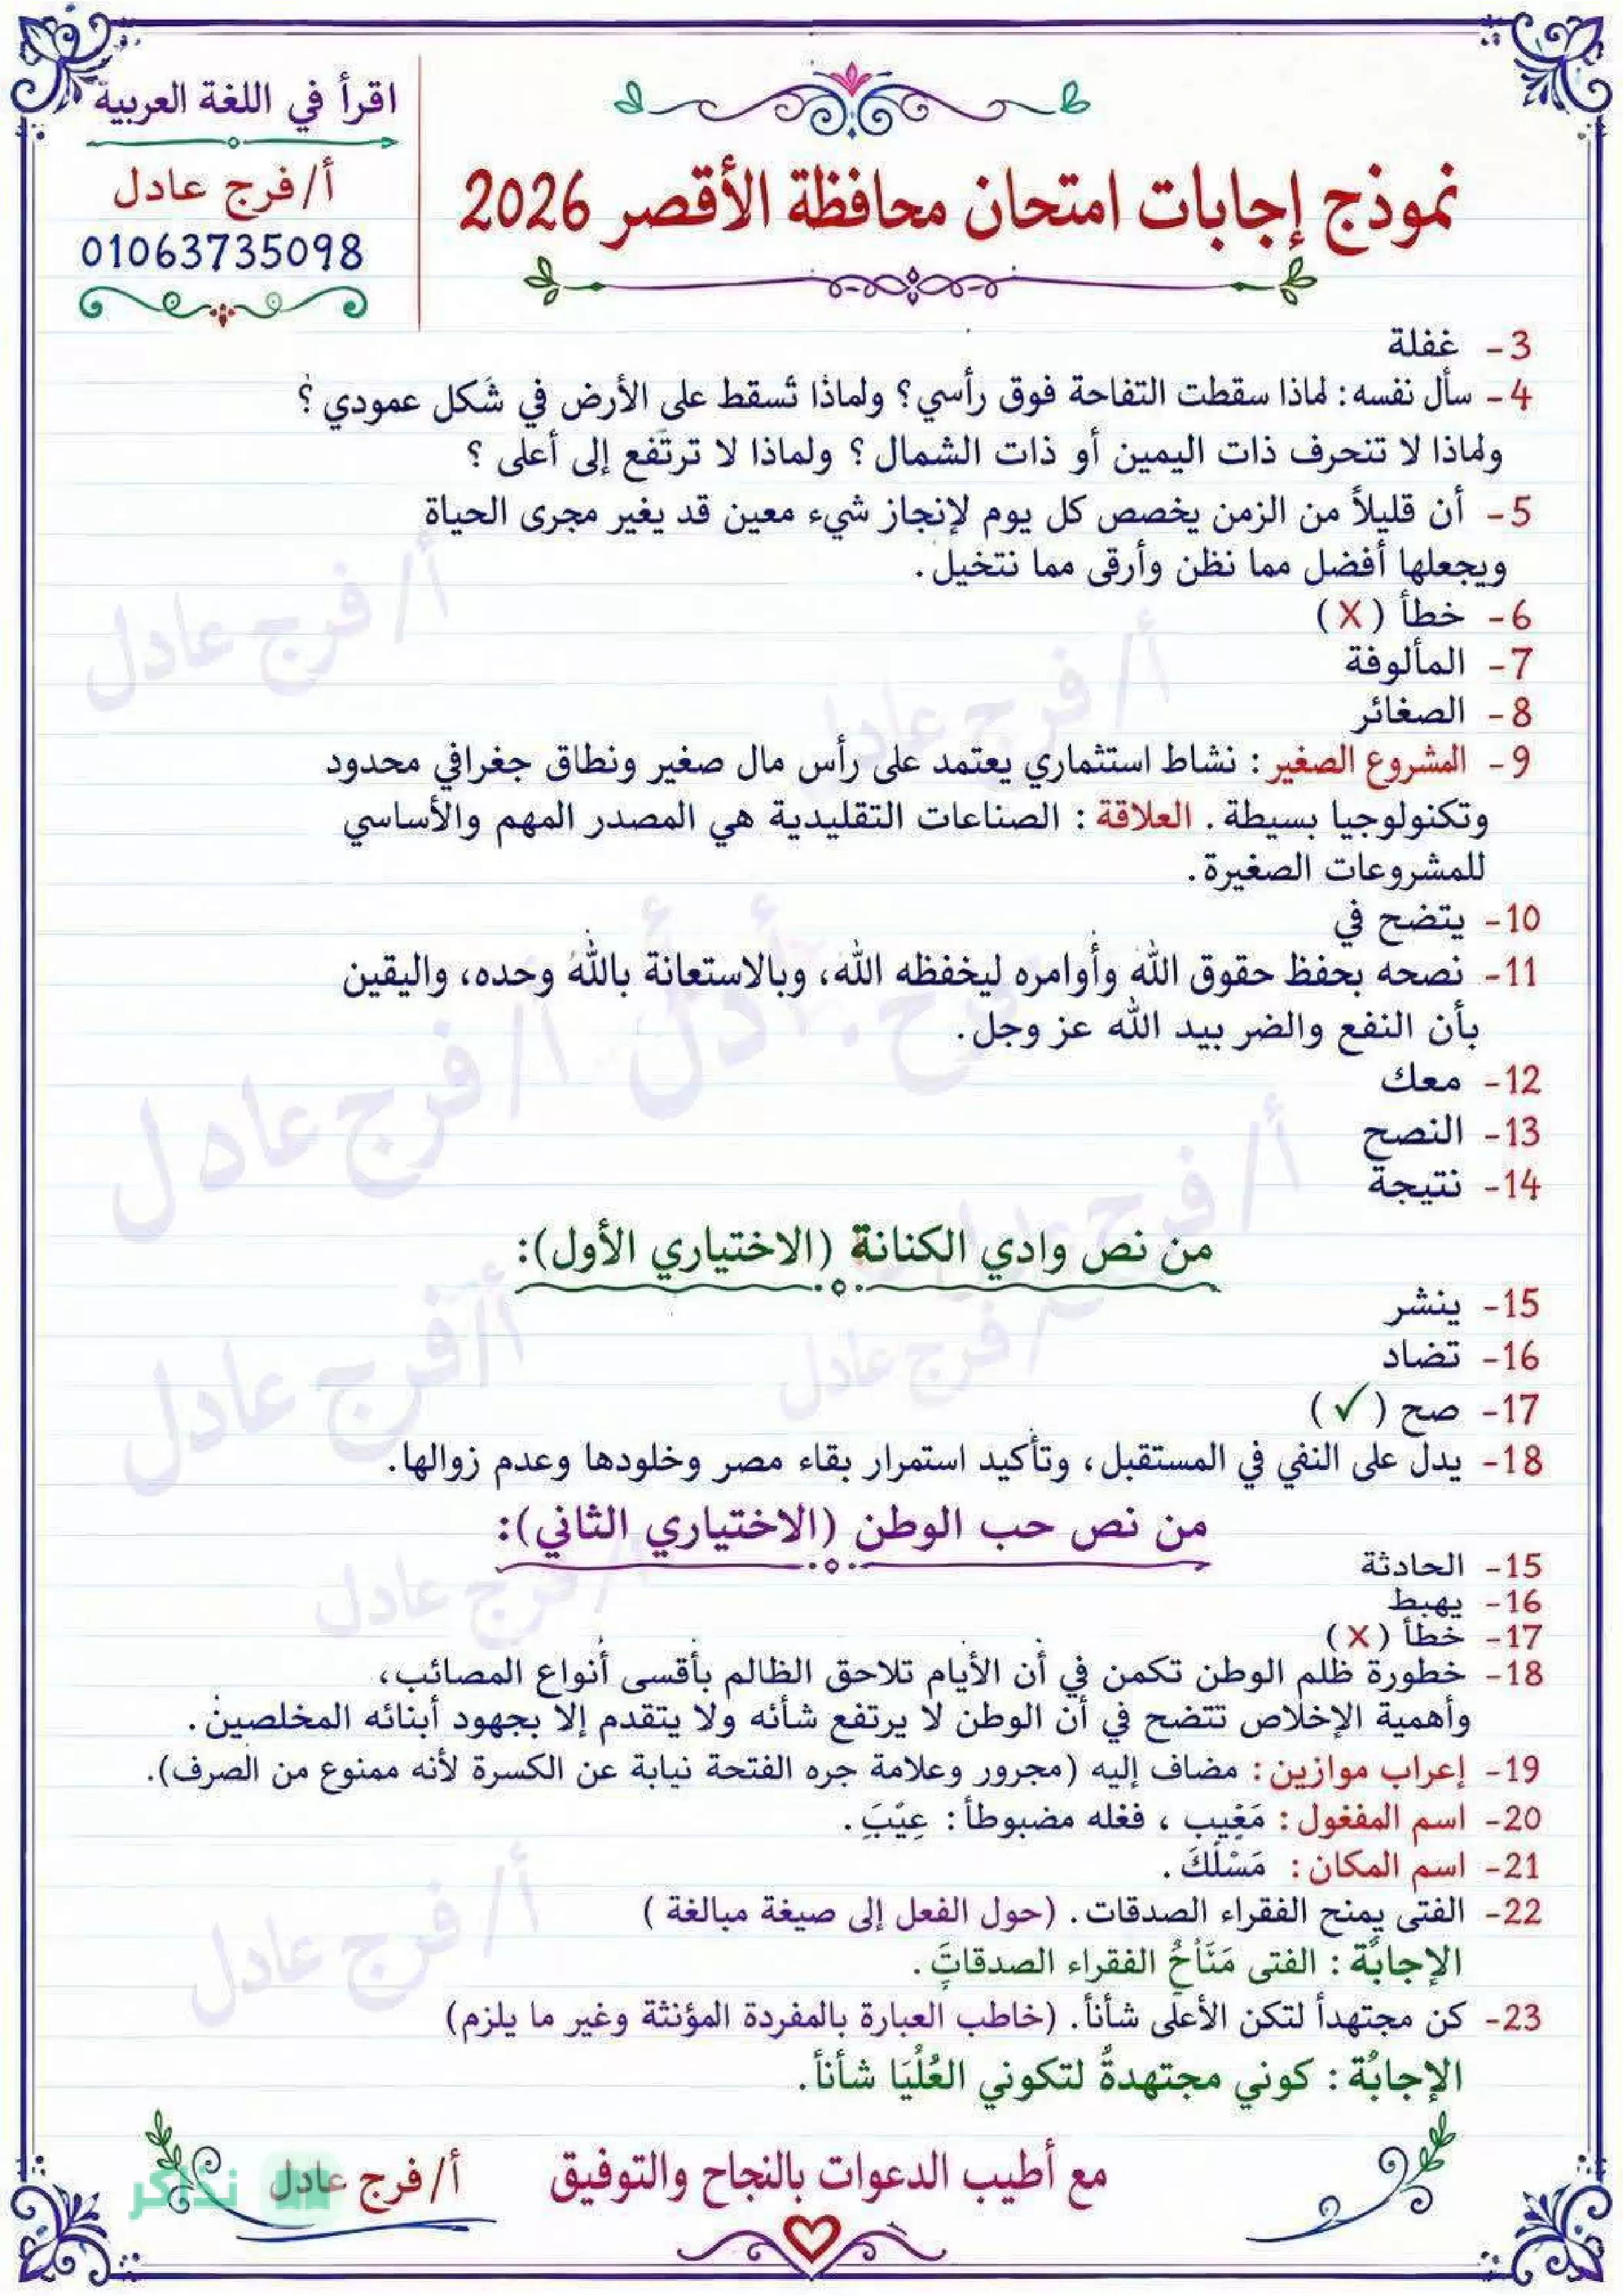 اقرأ في اللغة العربية
أ/فرج عادل
01063735098
نموذج إجابات امتحان محافظة الأقصر 2026
3- غفلة
4- سأل نفسه: لماذا سقطت التفاحة فوق رأسي؟ ولماذا تسقط على الأرض في شكل عمودي ؟
ولماذا لا تنحرف ذات اليمين أو ذات الشمال؟ ولماذا لا ترتفع إلى أعلى ؟
5- أن قليلاً من الزمن يخصص كل يوم لإنجاز شيء معين قد يغير مجرى الحياة
ويجعلها أفضل مما نظن وأرقى مما نتخيل.
6- خطأ (X)
7- المألوفة
8- الصغائر
9- المشروع الصغير: نشاط استثماري يعتمد على رأس مال صغير ونطاق جغرافي محدود
وتكنولوجيا بسيطة. العلاقة: الصناعات التقليدية هي المصدر المهم والأساسي
للمشروعات الصغيرة.
10- يتضح في
11- نصحه بحفظ حقوق الله وأوامره ليخفظه الله، وبالاستعانة بالله وحده، واليقين
بأن النفع والضر بيد الله عز وجل.
12- معك
13- النصح
14- نتيجة
من نص وادي الكنانة (الاختياري الأول):
15- ينشر
16- تضاد
17- صح (✓)
18- يدل على النفي في المستقبل، وتأكيد استمرار بقاء مصر وخلودها وعدم زوالها.
من نص حب الوطن (الاختياري الثاني):
15- الحادثة
16- يهبط
17- خطأ (X)
18- خطورة ظلم الوطن تكمن في أن الأيام تلاحق الظالم بأقسى أنواع المصائب،
وأهمية الإخلاص تتضح في أن الوطن لا يرتفع شأنه ولا يتقدم إلا بجهود أبنائه المخلصين.
19- إعراب موازين: مضاف إليه (مجرور وعلامة جره الفتحة نيابة عن الكسرة لأنه ممنوع من الصرف).
20- اسم المفغول: مَغِيب ، فغله مضبوطاً: عِيْبَ.
21- اسم المكان: مَسْلَكَ.
22- الفتى يمنح الفقراء الصدقات. (حول الفعل إلى صيغة مبالغة )
الإجابة: الفتى مَنَّاحٌ الفقراء الصدقاتِ.
23- كن مجتهداً لتكن الأعلى شأناً. (خاطب العبارة بالمفردة المؤنثة وغير ما يلزم)
الإجابة: كوني مجتهدةً لتكوني العُلْيَا شأناً.
مع أطيب الدعوات بالنجاح والتوفيق
أ/فرج عادل
نذاكر